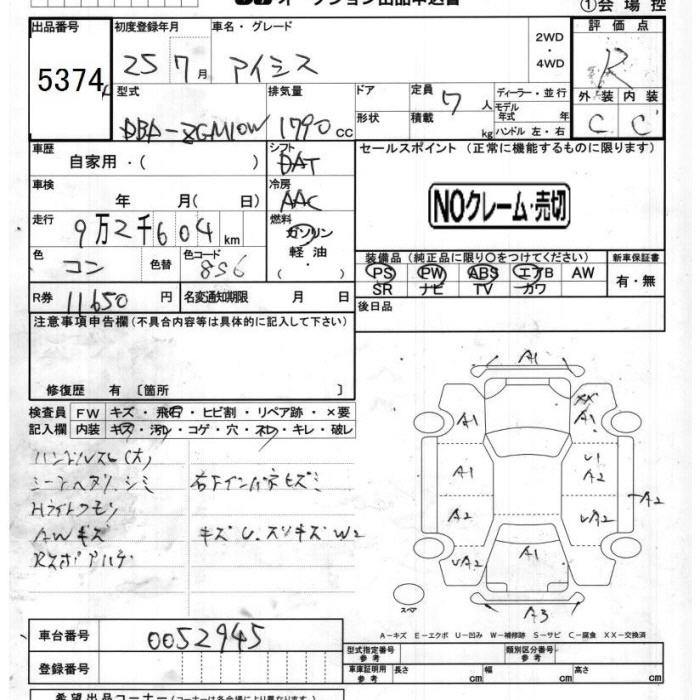 ①会場控
出品番号
5374
初度登録年月
25 7月
車名・グレード
アイシス
2WD
・
4WD
評価点
R
外装 内装
C C
型式
DBA-ZGM10W
排気量
1790 CC
ドア
形状
定員 7 人
積載 kg
ディーラー・並行
モデル
年式 年
ハンドル 左・右
車歴
自家用・( )
シフト
DAT
セールスポイント (正常に機能するものに限ります)
車検
年 月( 日)
冷房
AAC
NOクレーム・売切
走行
9万2千604 km
燃料
ガソリン
軽油
色
コン
色替
色コード
8S6
装備品 (純正品に限り○をつけてください)
PS PW ABS エアB AW
SR ナビ TV カワ
新車保証書
有・無
R券 11650 円
名変通知期限 月 日
後日品
注意事項申告欄(不具合内容等は具体的に記入して下さい)
修復歴 有 〔箇所 〕
検査員
記入欄
FW キズ・飛石・ヒビ割・リペア跡・×要
内装 キズ・汚レ・コゲ・穴・スレ・キレ・破レ
ハンドルスレ(大)
シートヘタリ、シミ
右下インパネヒズミ
Hライトクモリ
AWキズ
キズ U. スリキズ W2
A1
A1
XX
A1
A1
U1
A2
A2
A2
UA2
UA2
A1
A3
スペア
A-キズ E-エクボ U-凹み W-補修跡 S-サビ C-腐食 XX-交換済
車台番号
0052945
登録番号
型式指定番号
参考
類別区分番号
参考
車庫証明用
参考
長さ cm 幅 cm 高さ cm